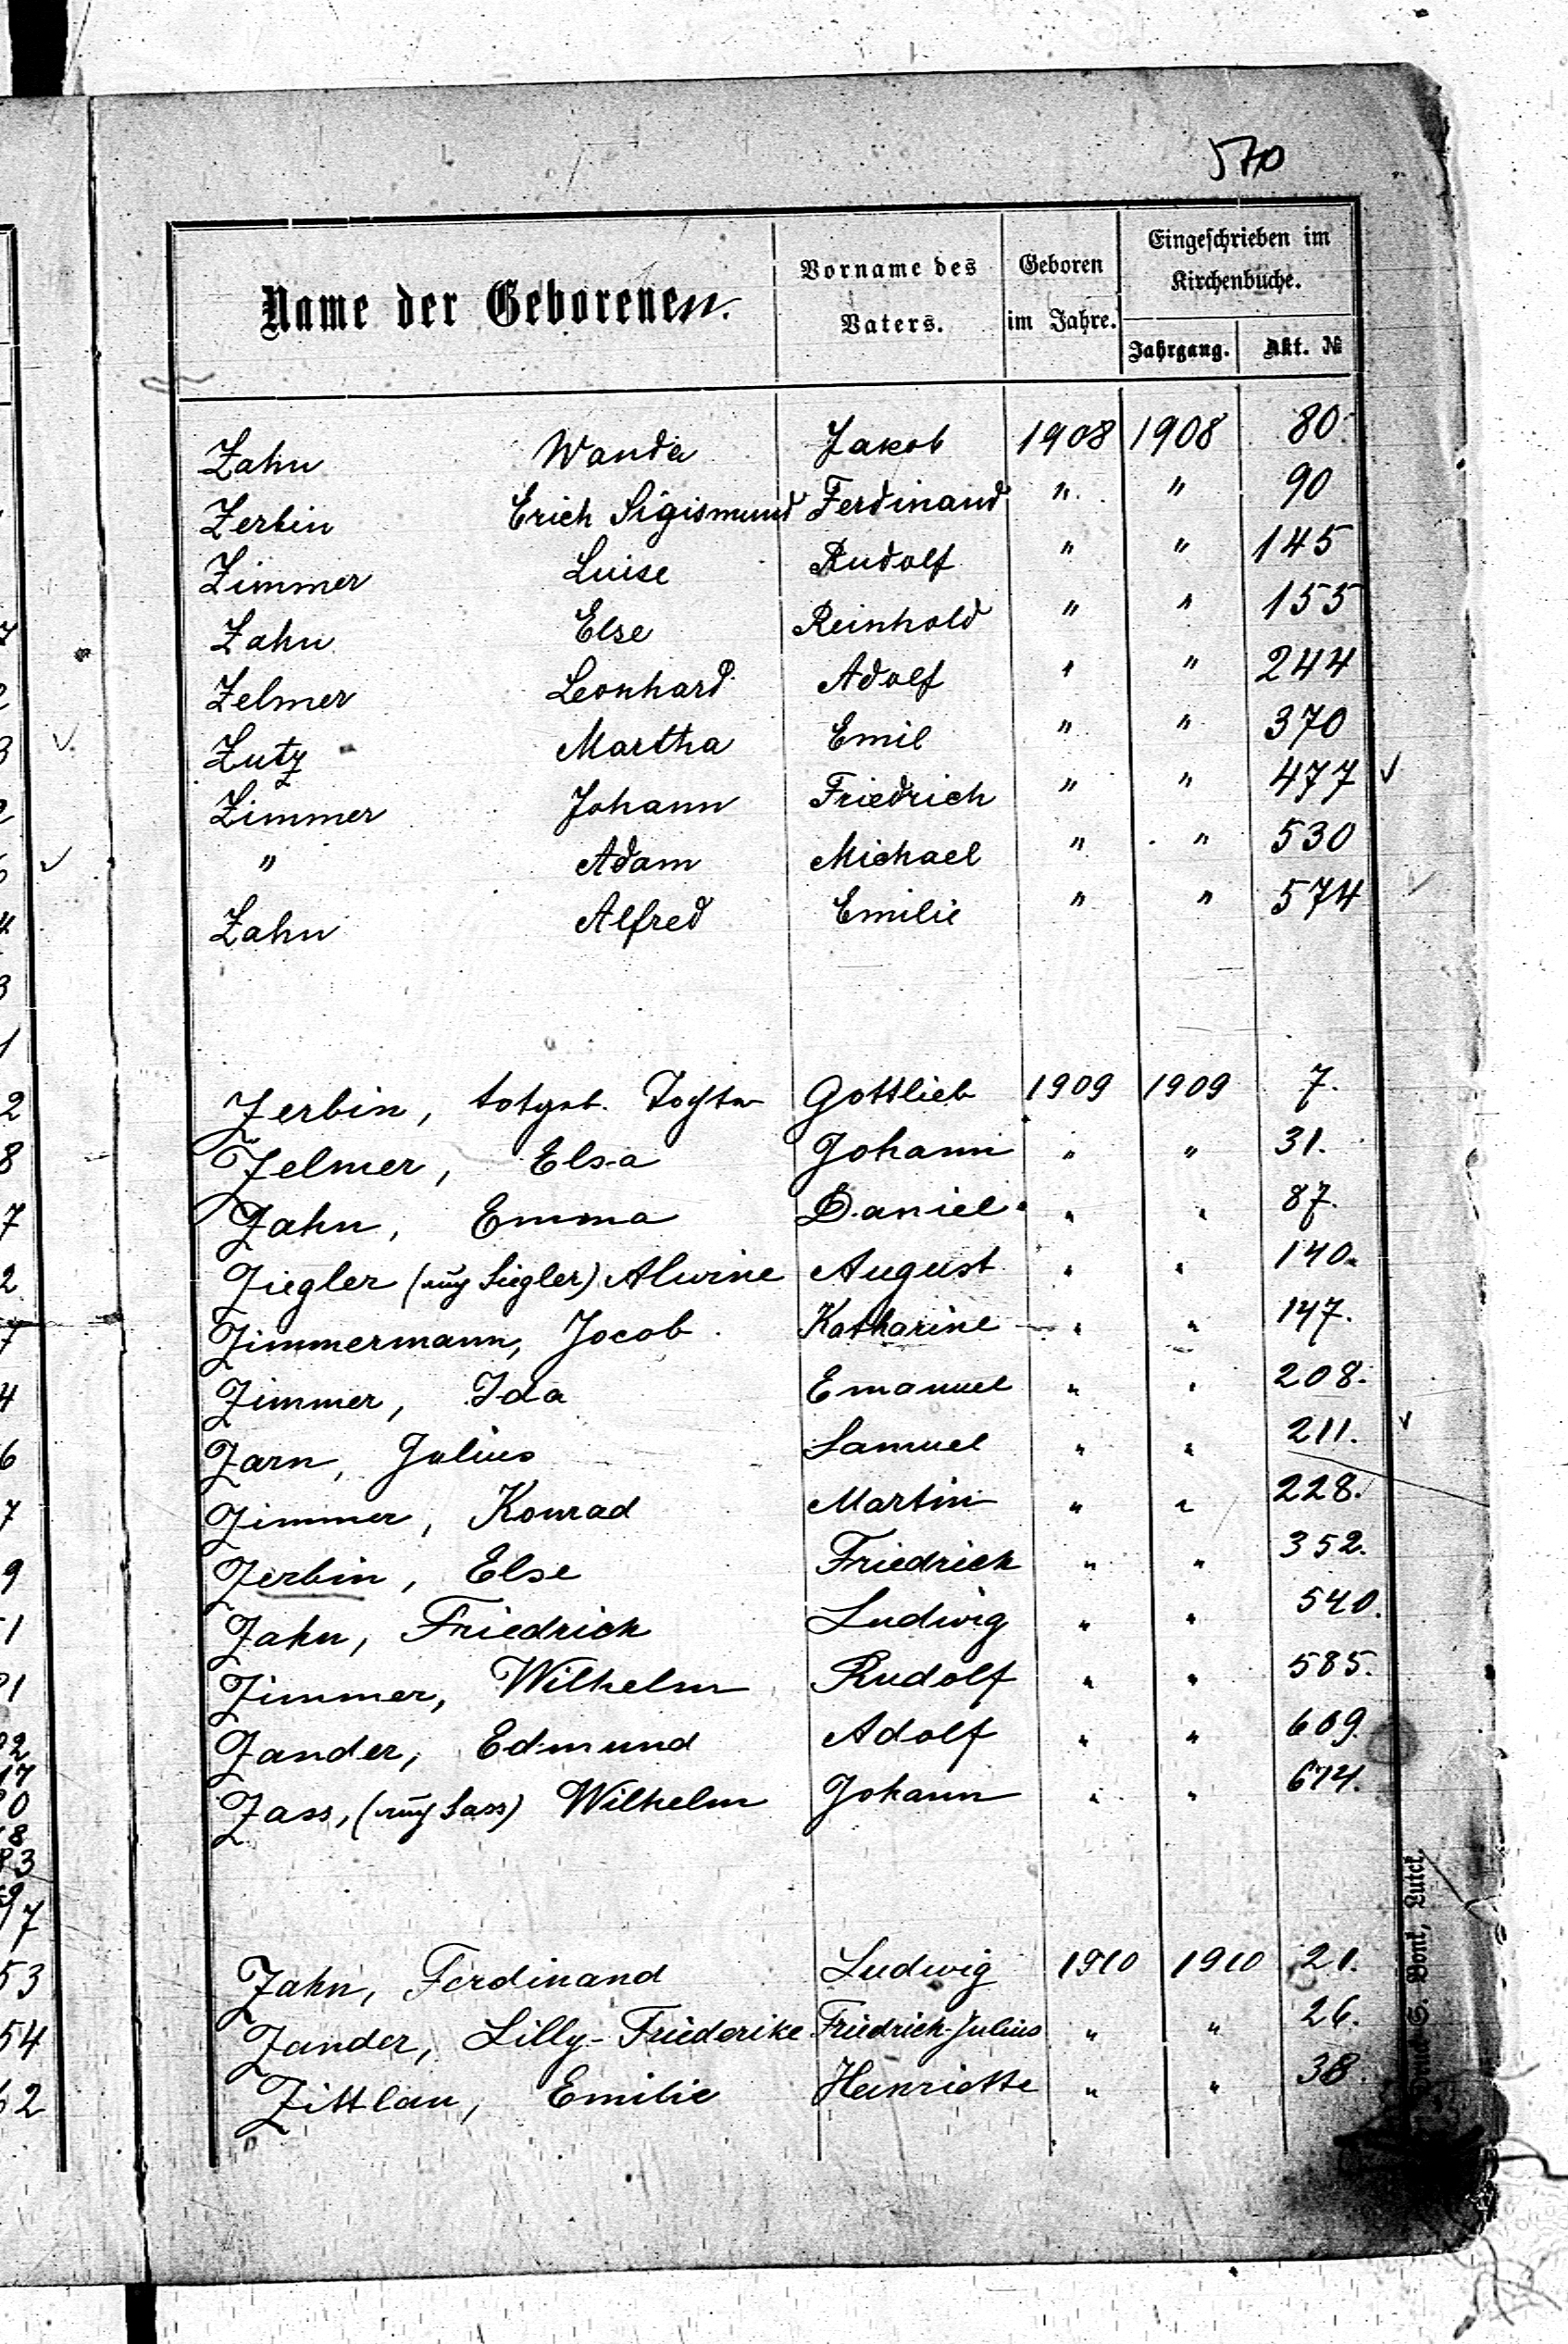 570
Name der Geborenen.
Vorname des Vaters.
Geboren im Jahre.
Eingeschrieben im Kirchenbuche.
Jahrgang.
Akt. №
Zahn Wanda Jakob 1908 1908 80.
Zerbin Erich Sigismund Ferdinand " " 90
Zimmer Luise Rudolf " " 145
Zahn Else Reinhold " " 155
Zelmer Leonhard Adolf " " 244
Zutz Martha Emil " " 370
Zimmer Johann Friedrich " " 477 ✓
" Adam Michael " " 530
Zahn Alfred Emilie " " 574
Zerbin, totgeb. Tochter Gottlieb 1909 1909 7.
Zelmer, Elsa Johann " " 31.
Zahn, Emma Daniel " " 87.
Ziegler (auch Siegler) Alwine August " " 140.
Zimmermann, Jocob. Katharine " " 147.
Zimmer, Ida Emanuel " " 208.
Zarn, Julius Samuel " " 211. ✓
Zimmer, Konrad Martin " " 228.
Zerbin, Else Friedrich " " 352.
Zahn, Friedrich Ludwig " " 540.
Zimmer, Wilhelm Rudolf " " 585.
Zander, Edmund Adolf " " 609.
Zass, (auch Sass) Wilhelm Johann " " 674.
Zahn, Ferdinand Ludwig 1910 1910 21.
Zander, Lilly-Friederike Friedrich-Julius " " 26.
Zittlau, Emilie Henriette " " 38.
Bonk, Lutck.